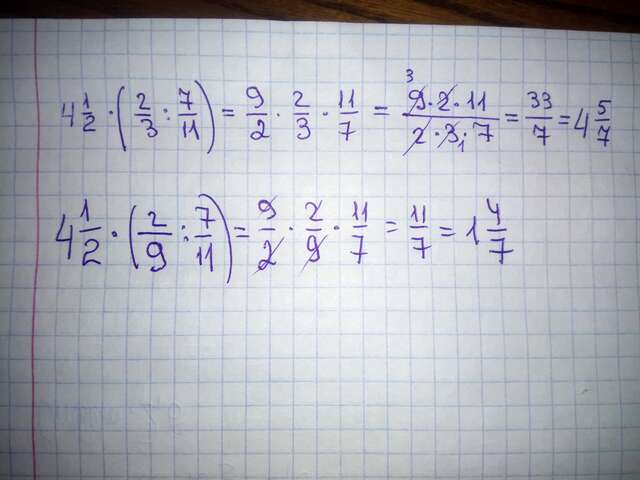 4 1/2 · (2/3 : 7/11) = 9/2 · 2/3 · 11/7 = 9·2·11/2·3·7 3 1 = 33/7 = 4 5/7
4 1/2 · (2/9 : 7/11) = 9/2 · 2/9 · 11/7 = 11/7 = 1 4/7